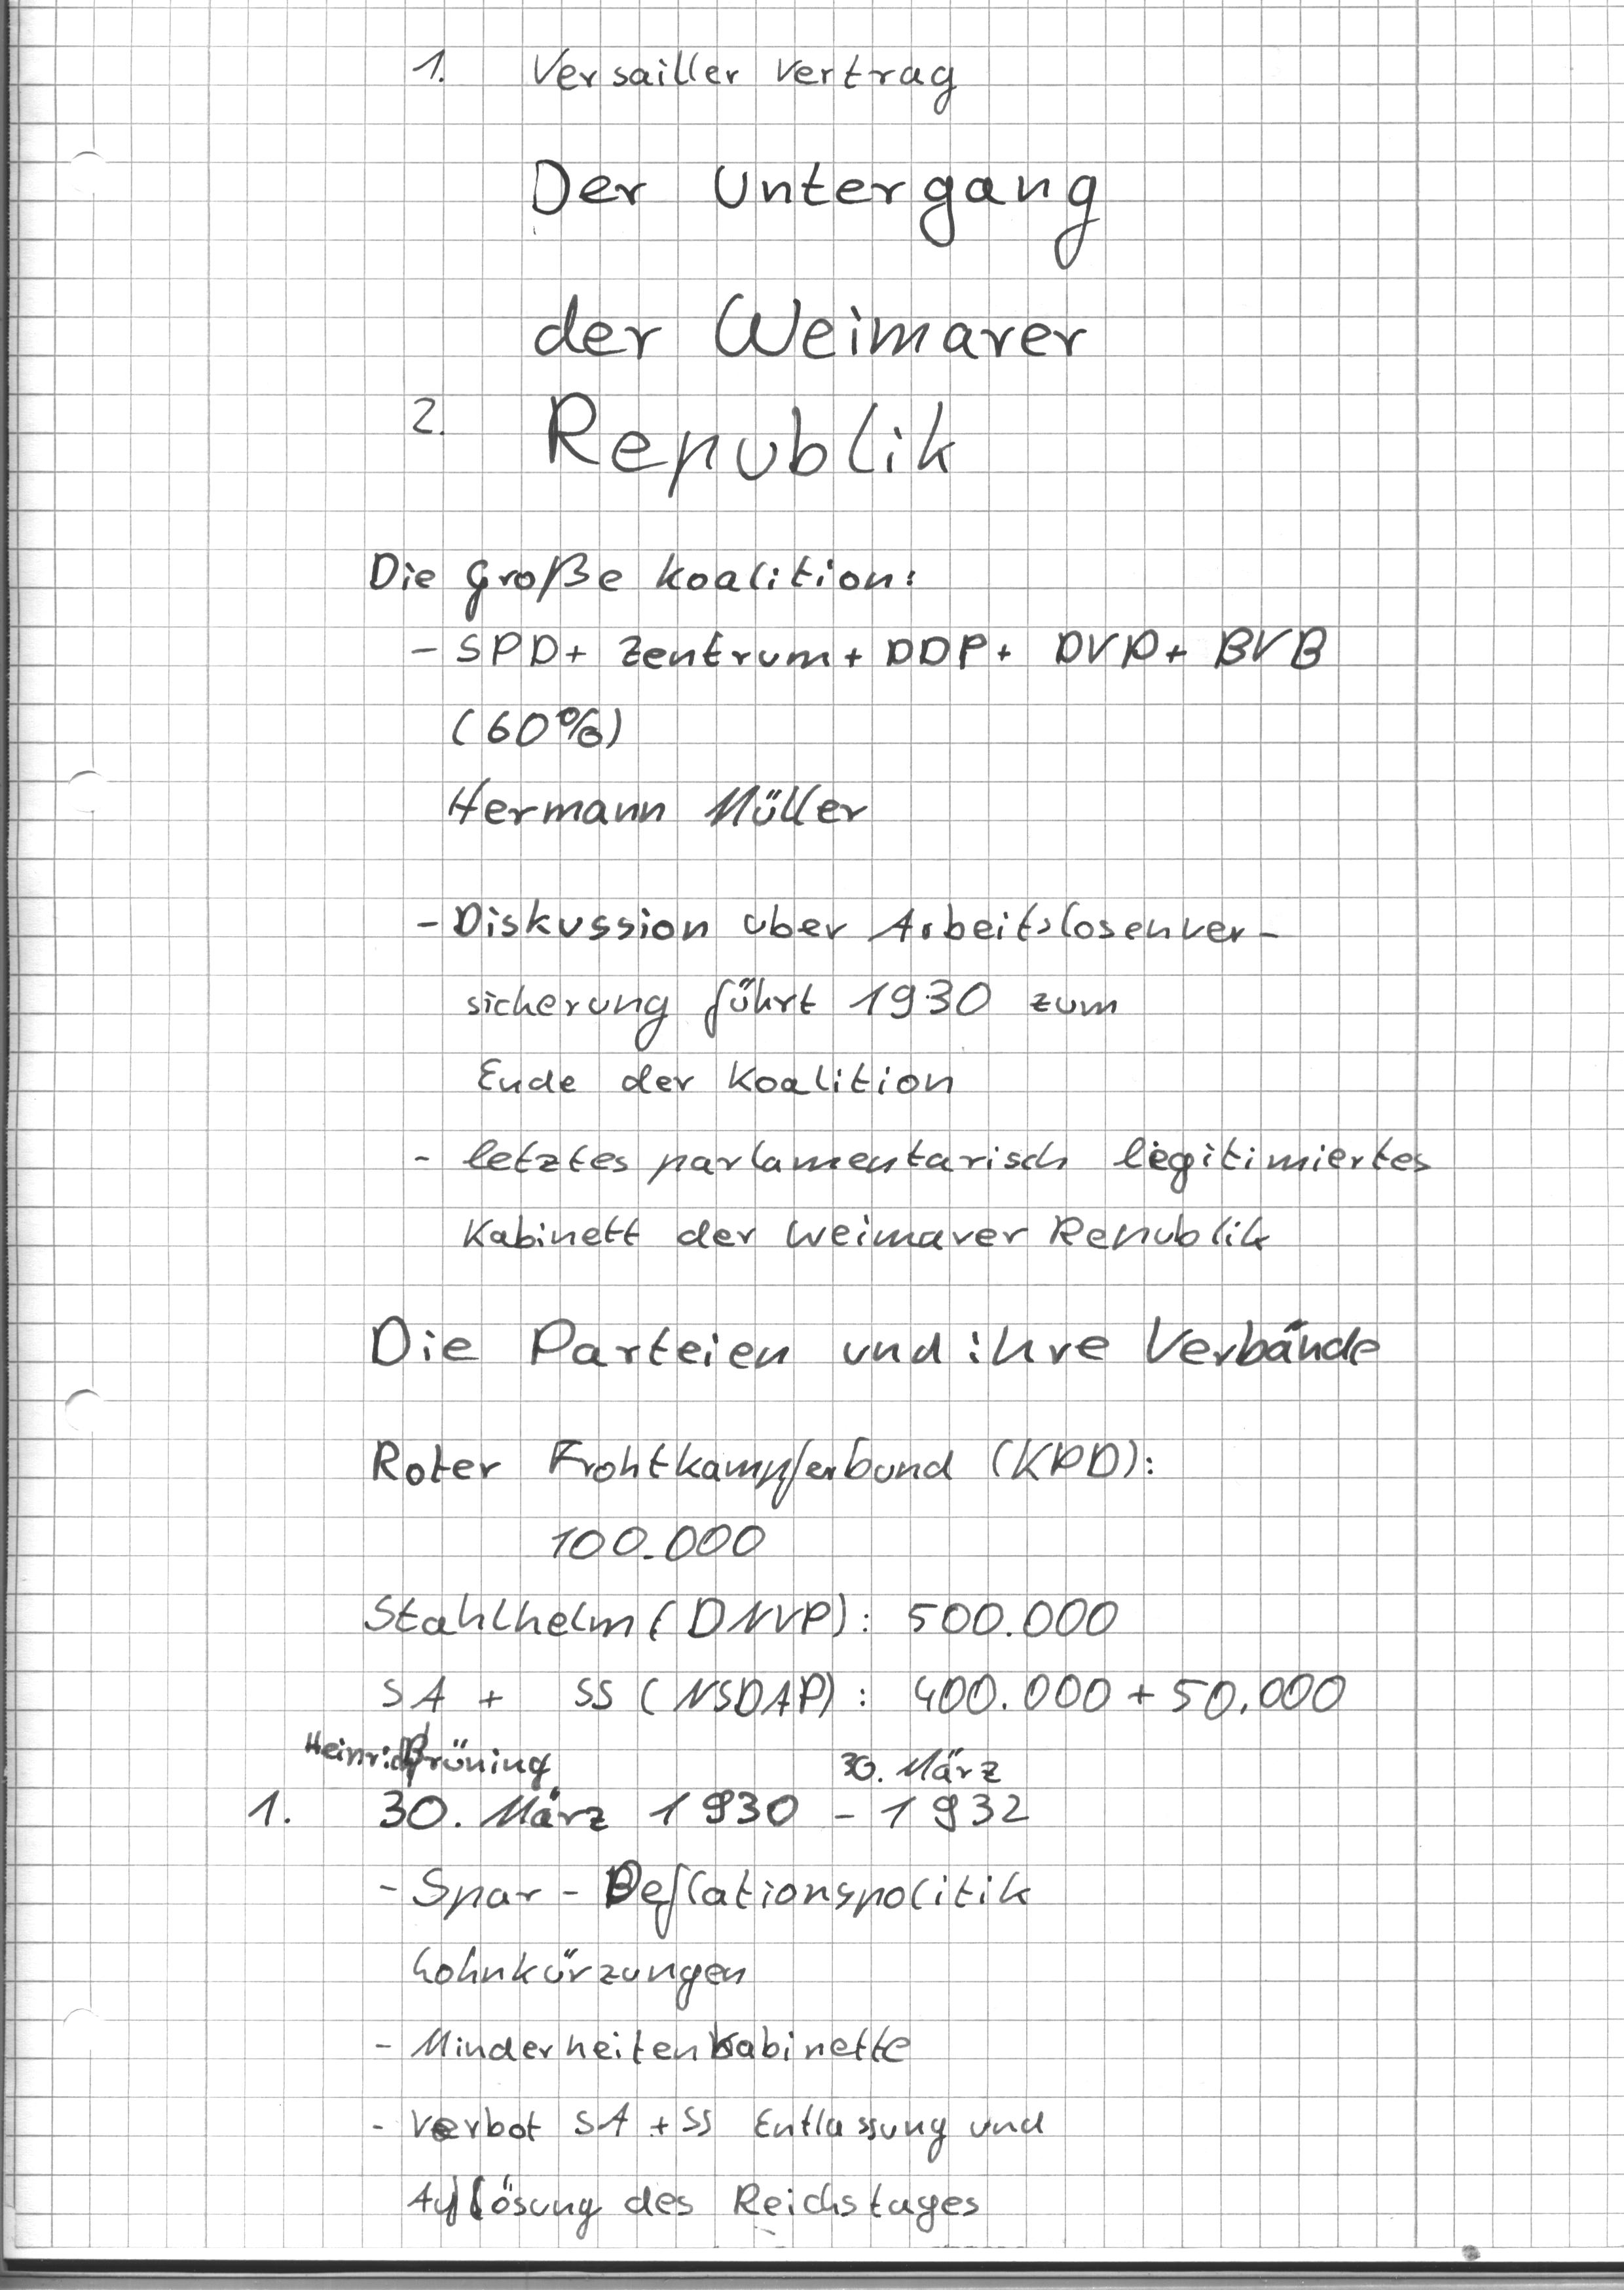 1. Versailler Vertrag
Der Untergang
der Weimarer
2. Republik
Die große Koalition:
- SPD + Zentrum + DDP + DVP + BVB
(60%)
Hermann Müller
- Diskussion über Arbeitslosenver-
sicherung führt 1930 zum
Ende der Koalition
- letztes parlamentarisch legitimiertes
Kabinett der Weimarer Republik
Die Parteien und ihre Verbände
Roter Frohtkampferbund (KPD):
100.000
Stahlhelm (DNVP): 500.000
SA + SS (NSDAP): 400.000 + 50.000
Heinrich Brüning 30. März
1. 30. März 1930 - 1932
- Spar - Deflationspolitik
Lohnkürzungen
- Minderheitenkabinette
- Verbot SA + SS Entlassung und
Auflösung des Reichstages